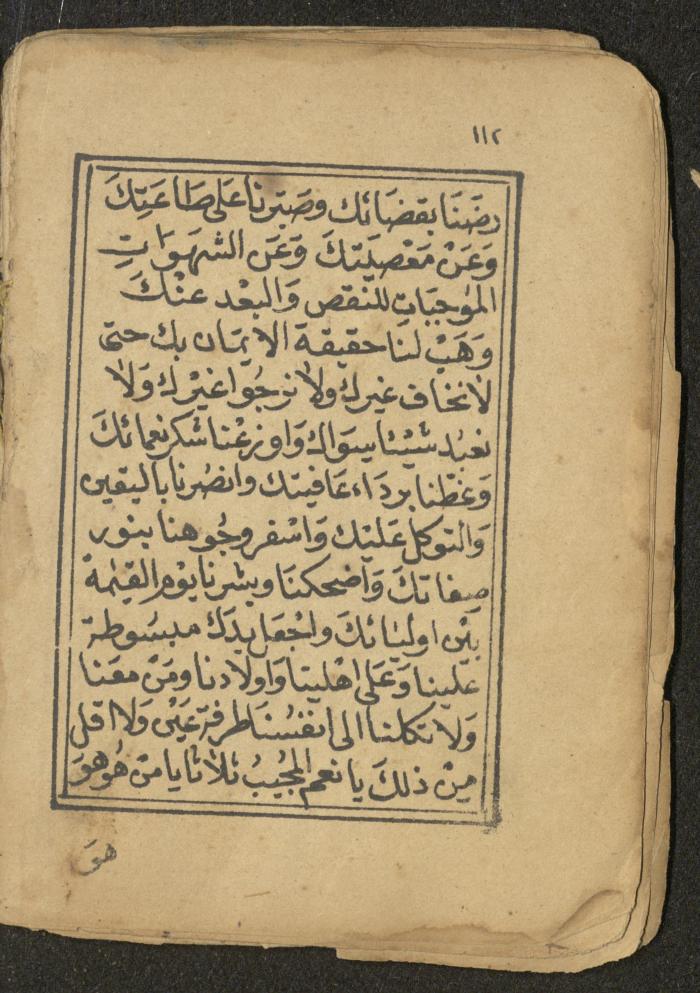 ١١٢
رضَنَا بقضَائك وصَبّرنا عَلى طَاعَتِكَ
وَعَنْ مَعْصِيَتكَ وَعَن الشهَوَاتِ
الموْجبَاتِ للنقص وَالبعْد عنْكَ
وَهَبْ لنَا حقيقة الايمَان بك حتى
لا نخاف غيرك ولا نرجُوا غيْرك وَلا
نعبُد شيْئا سِوَاك وَاوزعْنا شكر نعمائكَ
وَغطنا بردَاء عَافيتك وانصُرنا باليقين
وَالتوكل عَليْك وَاسْفر وجُوهنا بنور
صِفاتكَ وَاضحكنَا وبشرنا يوْم القيٰمة
بيْن اوليَائكَ وَاجْعَل يدَكَ مبسُوطة
علينا وَعَلى اهْلينا وَاولادنا ومَنْ معَنا
وَلا تكلنا الى انفسُنَا طرفة عَيْن وَلا اقل
مِنْ ذلكَ يا نعم المُجيْبُ ثلاثا يا مَنْ هُو هوَ
هوَ